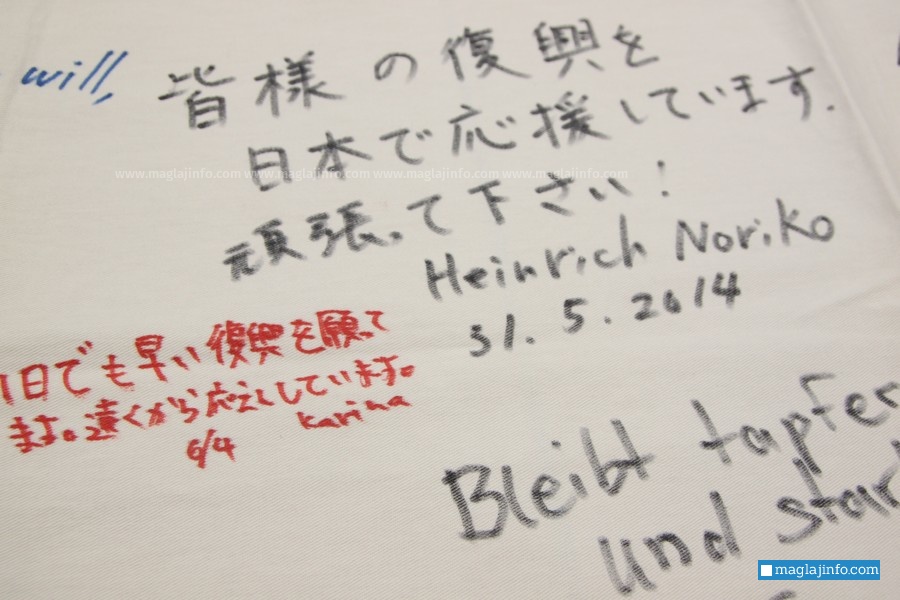 will,
皆様の復興を
日本で応援しています.
www.maglajinfo.com www.maglajinfo.com www.maglajinfo.com www.maglajinfo.com
頑張って下さい!
Heinrich Noriko
31.5.2014
1日でも早い復興を願って
ます。遠くから応えんしています。
6/4 Karina
Bleibt tapfer
und star
maglajinfo.com